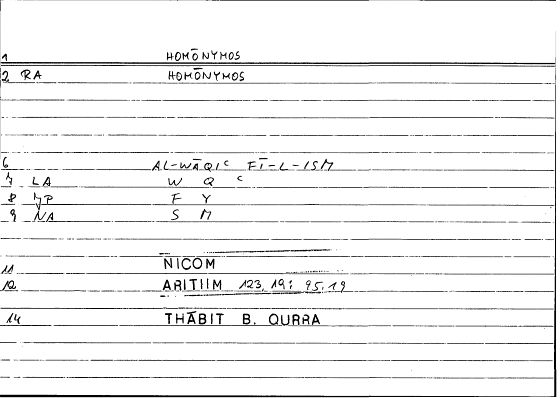 1 HOMŌNYMOS
2 RA HOMŌNYMOS
6 AL-WĀQIʿ FĪ-L-ISM
7 LA W Q ʿ
8 JP F Y
9 NA S M
11 NICOM
12 ARITIIM 123,19; 95,19
14 THĀBIT B. QURRA